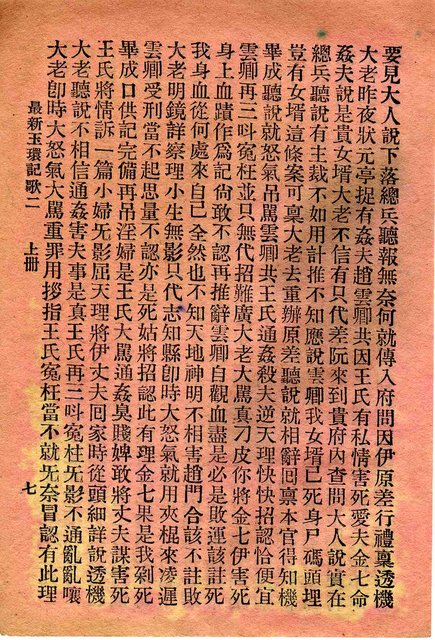 要見大人說下落總兵聽報無奈何就傳入府問因伊原差行禮稟透機
大老昨夜狀元亭捉有姦夫趙雲卿共因王氏有私情害死愛夫金七命
姦夫說是貴女壻大老不信有只代差阮來到貴府內查問大人說實在
總兵聽說有主裁不如用計推不知應說雲卿我女壻已死身尸碼頭埋
豈有女壻這條案可稟大老去重辦原差聽說就相辭回稟本官得知機
畢成聽說就怒氣吊罵雲卿共王氏通姦殺夫逆天理快快招認恰便宜
雲卿再三叫冤枉並只無代招難廣大老大罵真刁皮你將金七伊害死
身上血蹟作爲記尙敢不認再推辭雲卿自觀血盡是必是敗運該註死
我身血從何處來自己全然也不知天地神明不相害趙門合該不註敗
大老明鏡詳察理小生無影只代志知縣卽時大怒氣就用夾棍來凌遲
雲卿受刑當不起思量不認亦是死姑將招認此有理金七果是我剁死
畢成口供記完備再吊淫婦是王氏大罵通姦臭賤婢敢將丈夫謀害死
王氏將情訴一篇小婦旡影屈天理將伊丈夫囘家時從頭細詳說透機
大老聽說不相信通姦害夫事是真王氏再三叫冤枉旡影不通亂亂嚷
大老卽時大怒氣大罵重罪用拶指王氏冤枉當不就旡奈冒認有此理
最新玉環記歌二　上冊　七